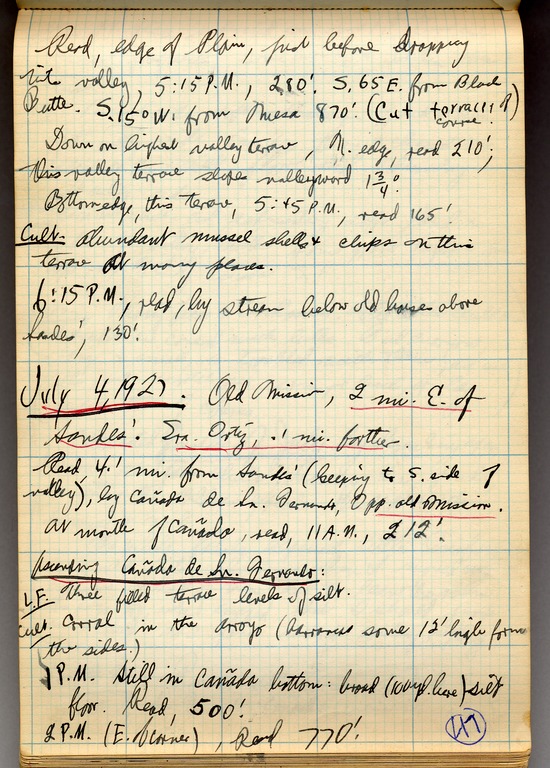 Read, edge of Plain, just before dropping
into valley, 5:15 P.M., 280'. S. 65 E. from Black
Butte. S. 15° W. from Mesa 870'. (Cut terrace of
course.
Down on highest valley terrace, N. edge, read 210';
this valley terrace slopes valleyward 1 3/4°.
Bottom edge, this terrace, 5:45 P.M., read 165'.
Cult. abundant mussel shells & chips on this
terrace at many places.
6:15 P.M., read, by stream below old houses above
130'.
July 4, 1927. Old Mission, 2 mi. E. of
Sra. Ortiz, .1 mi. farther.
Read, 4.1 mi. from (keeping to S. side of
valley), by Cañada de Sn. Fernando, Opp. old mission.
At mouth of Cañada, read, 11 A.M., 212'.
Ascending Cañada de Sn. Fernando:
Three filled terrace levels of silt.
Cult. Corral in the arroyo (barrancas some 12' high form
the sides.)
1 P.M. Still in Cañada bottom: broad (100 yd. here) silt
floor. Read, 500'.
2 P.M. (E. of corner), Read 770'.
47